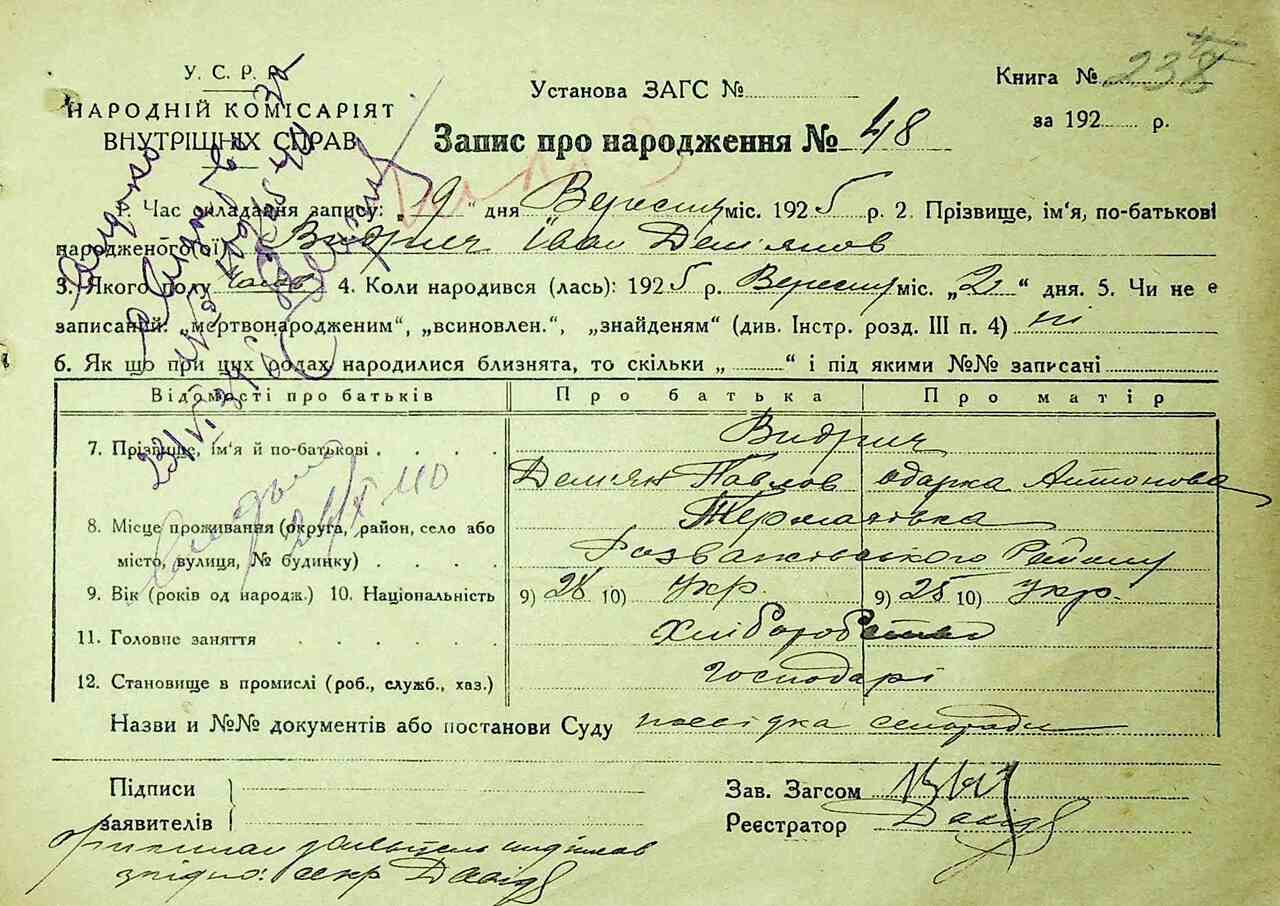 У. С. Р. Р.
НАРОДНІЙ КОМІСАРІЯТ
ВНУТРІШНІХ СПРАВ
Установа ЗАГС №
Книга № 238
за 192 р.
Запис про народження № 48
1. Час складання запису: „19“ дня Вересня міс. 1925 р. 2. Прізвище, ім'я, по-батькові
народженого(ої) Видрич Іван Дем'янов
3. Якого полу чолов 4. Коли народився (лась): 1925 р. Вересня міс. „2“ дня. 5. Чи не є
записаний: „мертвонародженим“, „всиновлен.“, „знайденям“ (див. Інстр. розд. III п. 4) ні
6. Як що при цих родах народилися близнята, то скільки „ “ і під якими №№ записані
Відомості про батьків Про батька Про матір
7. Прізвище, ім'я й по-батькові
Видрич
Демян Павлов одарка Антонова
8. Місце проживання (округа, район, село або
місто, вулиця, № будинку)
Термахівка
Розважівського Району
9. Вік (років од народж.) 10. Національність 9) 28 10) Укр. 9) 25 10) Укр.
11. Головне заняття Хліборобство
12. Становище в промислі (роб., служб., хаз.) господарі
Назви и №№ документів або постанови Суду посвідка сельради
Підписи
заявителів
Зав. Загсом
Реєстратор
згідно: секр